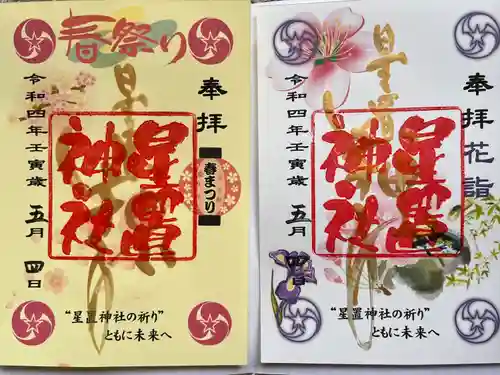 春祭り
奉拝
春まつり
星置神社
令和四年壬寅歳 五月 四日
"星置神社の祈り"
ともに未来へ
奉拝 花詣
星置神社
令和四年壬寅歳 五月 四日
"星置神社の祈り"
ともに未来へ